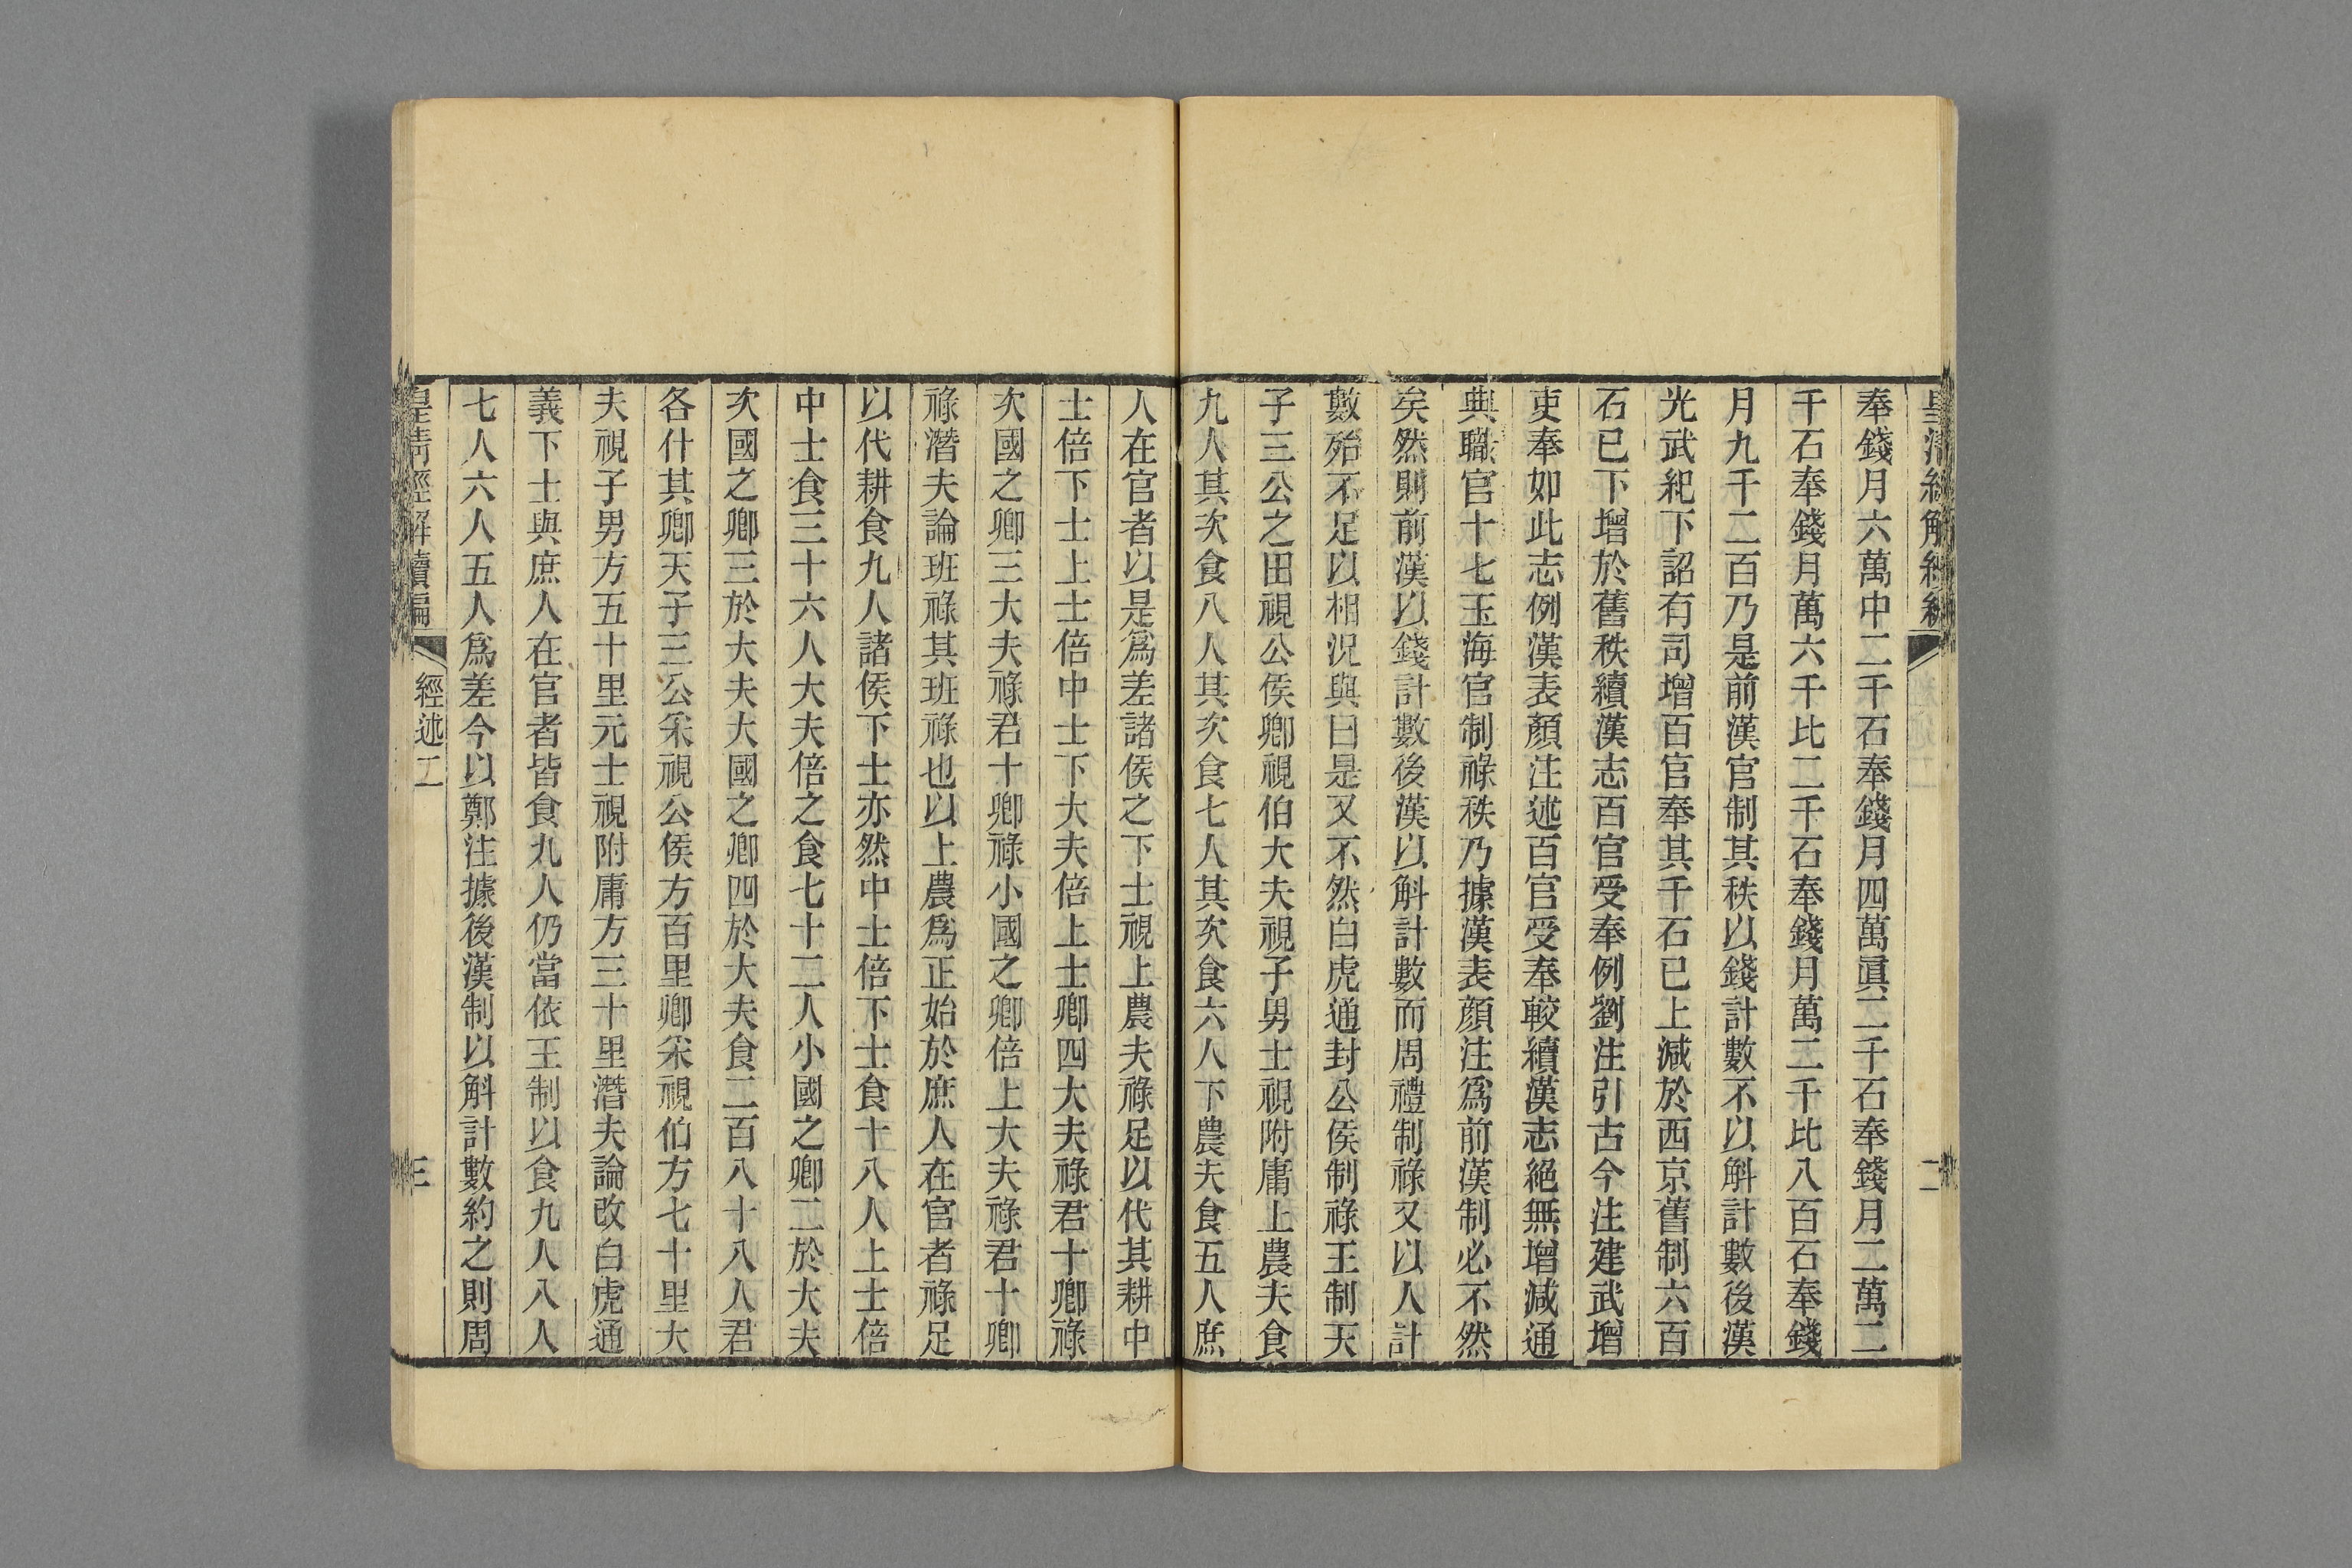 皇清經解續編
二
奉錢月六萬中二千石奉錢月四萬眞二千石奉錢月二萬二
千石奉錢月萬六千比二千石奉錢月萬二千比八百石奉錢
月九千二百乃是前漢官制其秩以錢計數不以斛計數後漢
光武紀下詔有司增百官奉其千石已上減於西京舊制六百
石已下增於舊秩續漢志百官受奉例劉注引古今注建武增
吏奉如此志例漢表顏注述百官受奉較續漢志絕無增減通
典職官十七玉海官制祿秩乃據漢表顏注爲前漢制必不然
矣然則前漢以錢計數後漢以斛計數而周禮制祿又以人計
數殆不足以相況與曰是又不然白虎通封公侯制祿王制天
子三公之田視公侯卿視伯大夫視子男士視附庸上農夫食
九人其次食八人其次食七人其次食六人下農夫食五人庶
人在官者以是爲差諸侯之下士視上農夫祿足以代其耕中
士倍下士上士倍中士下大夫倍上士卿四大夫祿君十卿祿
次國之卿三大夫祿君十卿祿小國之卿倍上大夫祿君十卿
祿潛夫論班祿其班祿也以上農爲正始於庶人在官者祿足
以代耕食九人諸侯下士亦然中士倍下士食十八人上士倍
中士食三十六人大夫倍之食七十二人小國之卿二於大夫
次國之卿三於大夫大國之卿四於大夫食二百八十八人君
各什其卿天子三公采視公侯方百里卿采視伯方七十里大
夫視子男方五十里元士視附庸方三十里潛夫論改白虎通
義下士與庶人在官者皆食九人仍當依王制以食九人八人
七人六人五人爲差今以鄭注據後漢制以斛計數約之則周
皇清經解續編
經述二
三